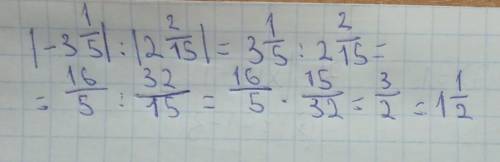 |-3 1/5| : |2 2/15| = 3 1/5 : 2 2/15 =
= 16/5 : 32/15 = 16/5 · 15/32 = 3/2 = 1 1/2